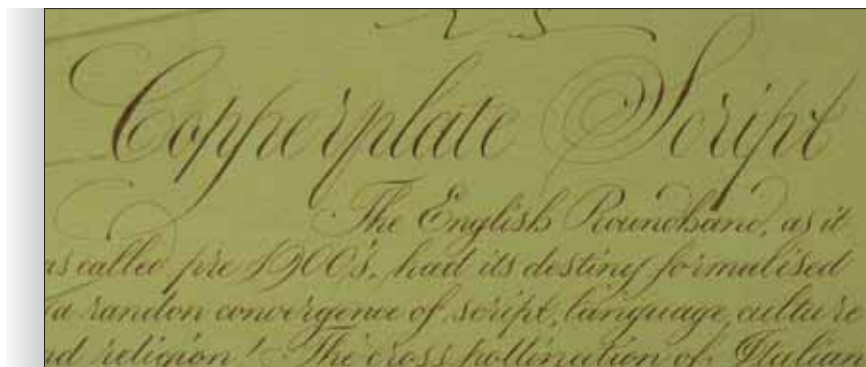 Copperplate Script
The English Roundhand, as it
as called pre 1900's, had its destiny formalised
a randon convergence of script, language, culture
nd religion! The cross pollination of Italian